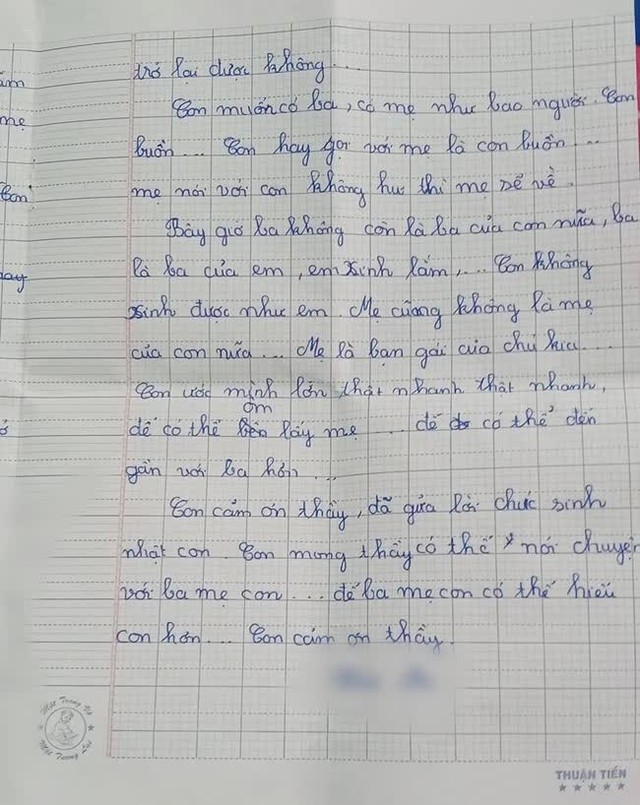 trở lại được không...
Con muốn có ba, có mẹ như bao người. Con
buồn... Con hay gọi với mẹ là con buồn...
mẹ nói với con không hư thì mẹ sẽ về.
Bây giờ ba không còn là ba của con nữa, ba
là ba của em, em xinh lắm,... Con không
xinh được như em. Mẹ cũng không là mẹ
của con nữa... Mẹ là bạn gái của chú kia...
Con ước mình lớn thật nhanh thật nhanh,
ôm
để có thể lấy mẹ... để có thể đến
gần với ba hơn...
Con cảm ơn thầy, đã gửa lời chúc sinh
nhật con. Con mong thầy có thể nói chuyện
với ba mẹ con... để ba mẹ con có thể hiểu
con hơn... Con cảm ơn thầy.
ăm
mẹ
Con
hay
Một Tương Lai
THUẬN TIẾN